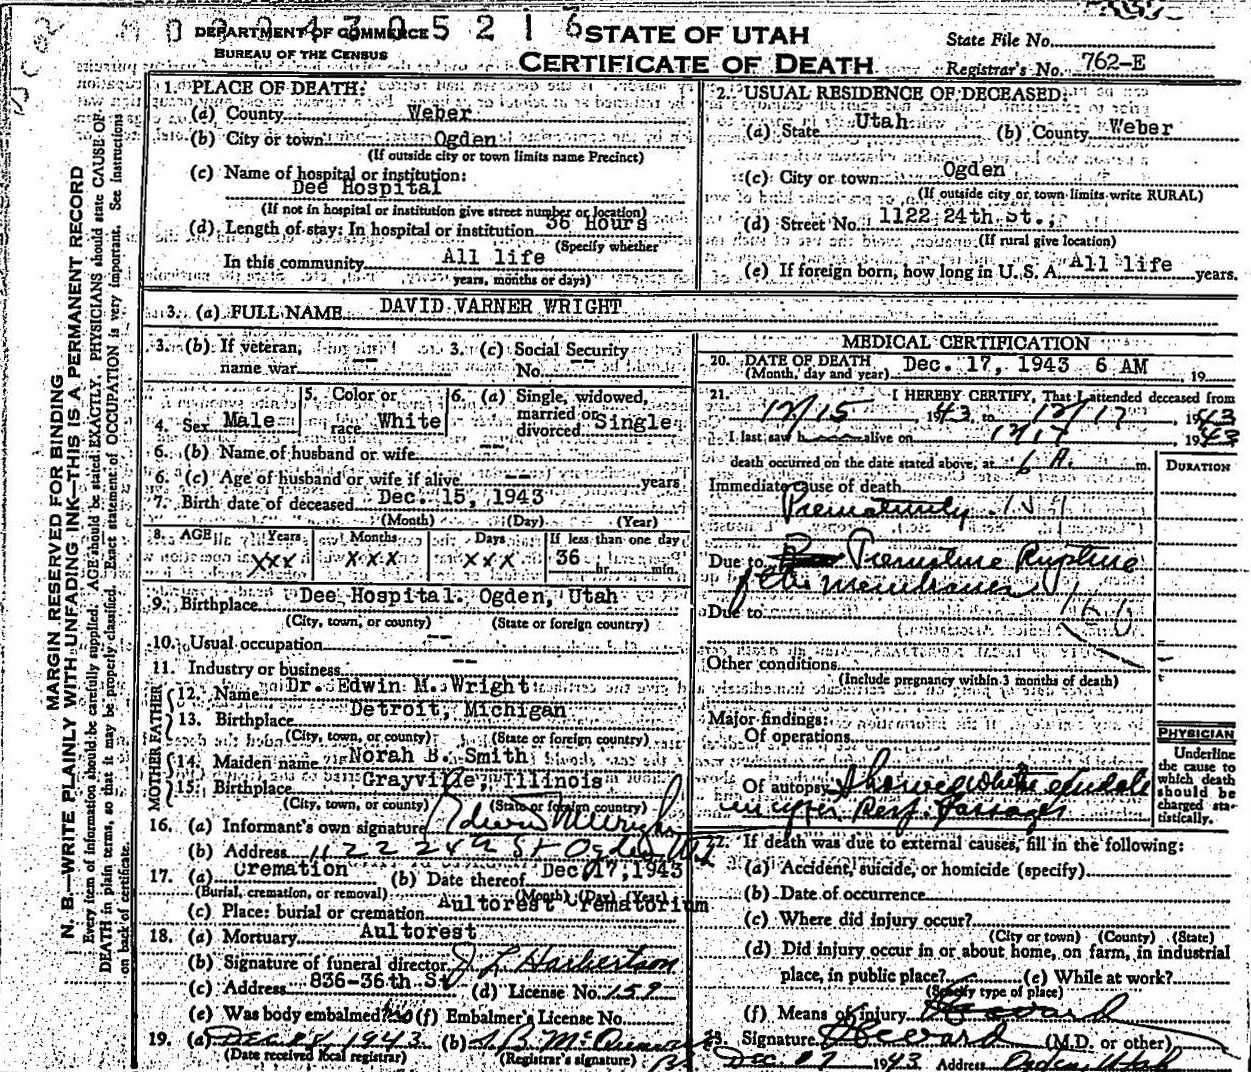 DEPARTMENT OF COMMERCE
BUREAU OF THE CENSUS
STATE OF UTAH
CERTIFICATE OF DEATH
State File No.
Registrar's No. 762-E
MARGIN RESERVED FOR BINDING
N. B.—WRITE PLAINLY WITH UNFADING INK—THIS IS A PERMANENT RECORD
Every item of information should be carefully supplied. AGE should be stated EXACTLY. PHYSICIANS should state CAUSE OF
DEATH in plain terms, so that it may be properly classified. Exact statement of OCCUPATION is very important. See instructions
on back of certificate.
1. PLACE OF DEATH:
(a) County Weber
(b) City or town Ogden
(If outside city or town limits name Precinct)
(c) Name of hospital or institution:
Dee Hospital
(If not in hospital or institution give street number or location)
(d) Length of stay: In hospital or institution 36 Hours
(Specify whether
In this community All life
years, months or days)
2. USUAL RESIDENCE OF DECEASED:
(a) State Utah (b) County Weber
(c) City or town Ogden
(If outside city or town limits write RURAL)
(d) Street No. 1122 24th St.,
(If rural give location)
(e) If foreign born, how long in U. S. A. All life years.
3. (a) FULL NAME DAVID VARNER WRIGHT
3. (b) If veteran, name war --
3. (c) Social Security No. --
4. Sex Male
5. Color or race White
6. (a) Single, widowed, married or divorced Single
6. (b) Name of husband or wife --
6. (c) Age of husband or wife if alive -- years
7. Birth date of deceased Dec. 15, 1943
(Month) (Day) (Year)
8. AGE Years Months Days If less than one day
xxx xxx xxx 36 hr. min.
9. Birthplace Dee Hospital. Ogden, Utah
(City, town, or county) (State or foreign country)
10. Usual occupation --
11. Industry or business --
FATHER
12. Name Dr. Edwin M. Wright
13. Birthplace Detroit, Michigan
(City, town, or county) (State or foreign country)
MOTHER
14. Maiden name Norah B. Smith
15. Birthplace Grayville, Illinois
(City, town, or county) (State or foreign country)
16. (a) Informant's own signature Edwin M Wright
(b) Address 1122 24th St Ogden Utah
17. (a) Cremation (b) Date thereof Dec 17, 1943
(Burial, cremation, or removal) (Month) (Day) (Year)
(c) Place: burial or cremation Aultorest Crematorium
18. (a) Mortuary Aultorest
(b) Signature of funeral director J L Harbertson
(c) Address 836-36th St (d) License No. 159
(e) Was body embalmed? no (f) Embalmer's License No.
19. (a) Dec 28, 1943 (b)
(Date received local registrar) (Registrar's signature)
MEDICAL CERTIFICATION
20. DATE OF DEATH Dec. 17, 1943 6 AM
(Month, day and year) , 19
21. I HEREBY CERTIFY, That I attended deceased from
12/15 1943 to 12/17, 1943
I last saw h alive on 12/17 1943
death occurred on the date stated above, at 6 A. m.
DURATION
Immediate cause of death
Prematurity
Due to Premature Rupture
of the membranes
Due to
Other conditions
(Include pregnancy within 3 months of death)
Major findings:
Of operations
Of autopsy Showed white exudate
in upper Resp. Passages
PHYSICIAN
Underline
the cause to
which death
should be
charged sta-
tistically.
22. If death was due to external causes, fill in the following:
(a) Accident, suicide, or homicide (specify)
(b) Date of occurrence
(c) Where did injury occur?
(City or town) (County) (State)
(d) Did injury occur in or about home, on farm, in industrial
place, in public place? (e) While at work?
(Specify type of place)
(f) Means of injury
23. Signature (M.D. or other)
Dec 27 1943 Address Ogden, Utah